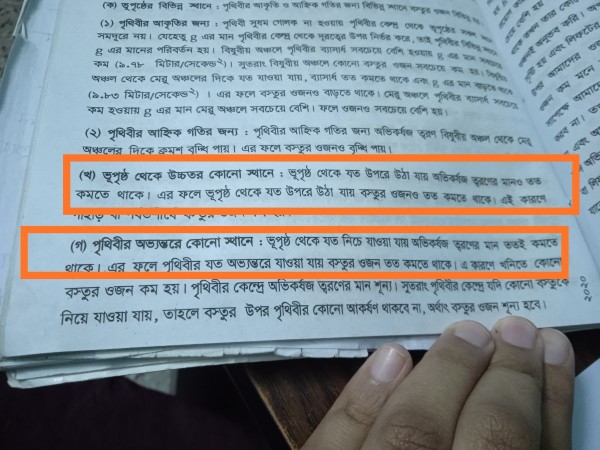 (ক) ভূপৃষ্ঠের বিভিন্ন স্থানে : পৃথিবীর আকৃতি ও আহ্নিক গতির জন্য বিভিন্ন স্থানে বস্তুর ওজন বিভিন্ন
(১) পৃথিবীর আকৃতির জন্য : পৃথিবী সুষম গোলক না হওয়ায় পৃথিবীর কেন্দ্র থেকে ভূপৃষ্ঠের সকল
সমদূরে নয়। যেহেতু g এর মান পৃথিবীর কেন্দ্র থেকে দূরত্বের উপর নির্ভর করে, তাই পৃথিবীর বিভিন্ন
g এর মানের পরিবর্তন হয়। বিষুবীয় অঞ্চলে পৃথিবীর ব্যাসার্ধ সবচেয়ে বেশি হওয়ায় g এর মান
কম (৯.৭৮ মিটার/সেকেন্ড²)। সুতরাং বিষুবীয় অঞ্চলে কোনো বস্তুর ওজন সবচেয়ে কম হয়।
অঞ্চল থেকে মেরু অঞ্চলের দিকে যত যাওয়া যায়, ব্যাসার্ধ তত কমতে থাকে এবং g এর মান বাড়তে থাকে
(৯.৮৩ মিটার/সেকেন্ড²)। এর ফলে বস্তুর ওজনও বাড়তে থাকে। মেরু অঞ্চলে পৃথিবীর ব্যাসার্ধ সবচেয়ে
কম হওয়ায় g এর মান মেরু অঞ্চলে সবচেয়ে বেশি। ফলে ওজনও সবচেয়ে বেশি হয়।
(২) পৃথিবীর আহ্নিক গতির জন্য : পৃথিবীর আহ্নিক গতির জন্য অভিকর্ষজ ত্বরণ বিষুবীয় অঞ্চল থেকে মেরু
অঞ্চলের দিকে ক্রমশ বৃদ্ধি পায়। এর ফলে বস্তুর ওজনও বৃদ্ধি পায়।
(খ) ভূপৃষ্ঠ থেকে উচ্চতর কোনো স্থানে : ভূপৃষ্ঠ থেকে যত উপরে উঠা যায় অভিকর্ষজ ত্বরণের মানও তত
কমতে থাকে। এর ফলে ভূপৃষ্ঠ থেকে যত উপরে উঠা যায় বস্তুর ওজনও তত কমতে থাকে। এই কারণে
(গ) পৃথিবীর অভ্যন্তরে কোনো স্থানে : ভূপৃষ্ঠ থেকে যত নিচে যাওয়া যায় অভিকর্ষজ ত্বরণের মান ততই কমতে
থাকে। এর ফলে পৃথিবীর যত অভ্যন্তরে যাওয়া যায় বস্তুর ওজন তত কমতে থাকে। এ কারণে খনিতে কোনো
বস্তুর ওজন কম হয়। পৃথিবীর কেন্দ্রে অভিকর্ষজ ত্বরণের মান শূন্য। সুতরাং পৃথিবীর কেন্দ্রে যদি কোনো বস্তুকে
নিয়ে যাওয়া যায়, তাহলে বস্তুর উপর পৃথিবীর কোনো আকর্ষণ থাকবে না, অর্থাৎ বস্তুর ওজন শূন্য হবে।
২০২০